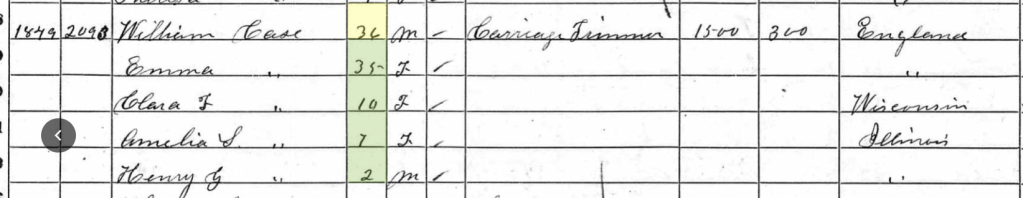 1849 2098 William Case 36 m ✓ Carriage Trimmer 1500 300 England
Emma " 35 F ✓ "
Clara F " 10 F ✓ Wisconsin
Amelia S. " 7 F ✓ Illinois
Henry G " 2 m ✓ "